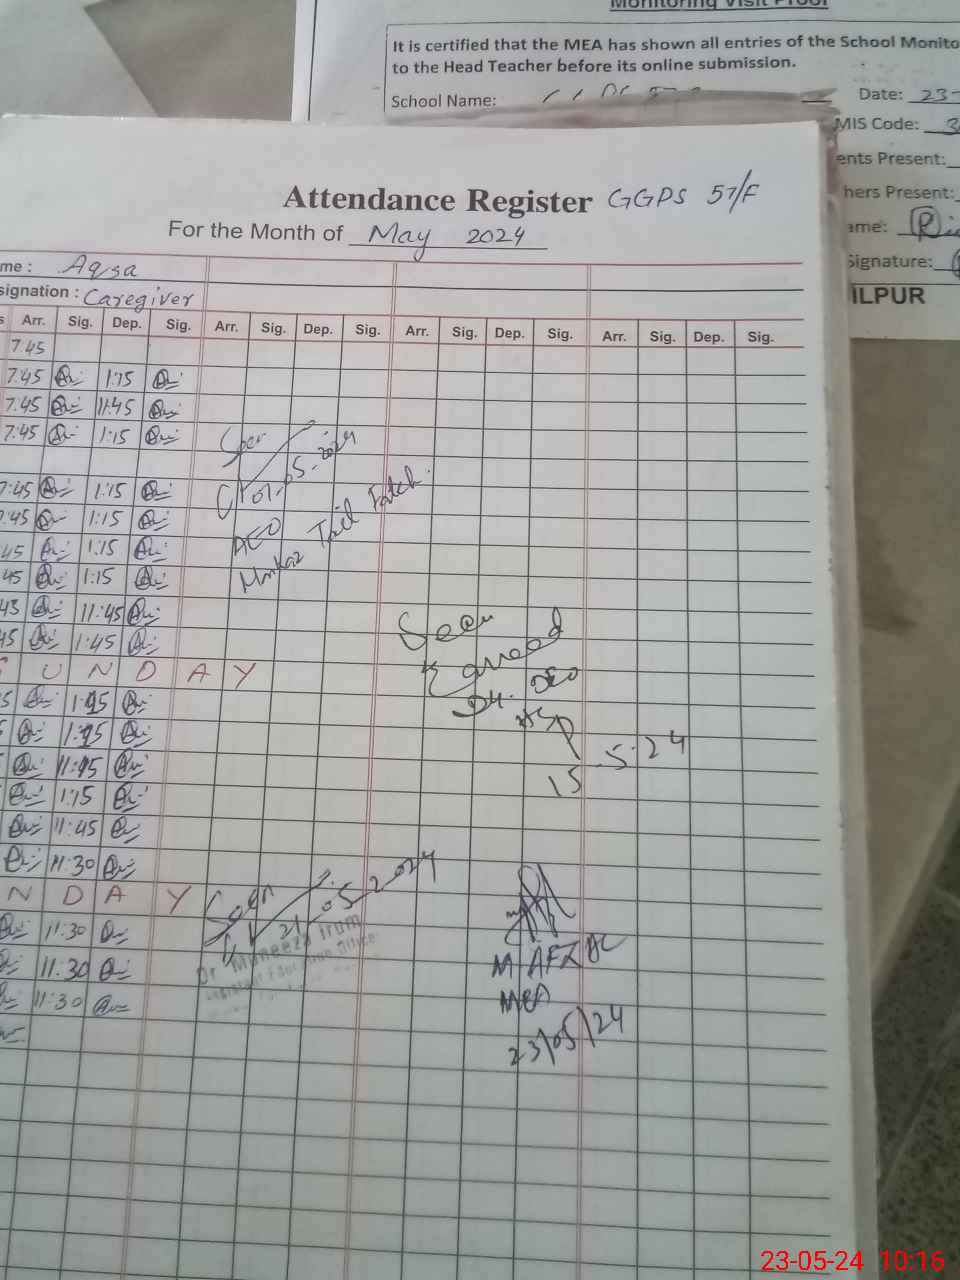 Monitoring Visit Proof
It is certified that the MEA has shown all entries of the School Monito
to the Head Teacher before its online submission.
School Name:
Date: 23-
MIS Code: 3
ents Present:
hers Present:
ame:
Signature:
ILPUR
Attendance Register GGPS 57/F
For the Month of May 2024
me : Aqsa
signation : Caregiver
s Arr. Sig. Dep. Sig. Arr. Sig. Dep. Sig. Arr. Sig. Dep. Sig. Arr. Sig. Dep. Sig.
7.45
7.45 1:15
7.45 11:45
7:45 1:15
7:45 1:15
7:45 1:15
45 1:15
45 1:15
45 11:45
45 1:45
S U N D A Y
5 1:15
1:15
11:45
1:15
11:45
11:30
N D A Y
11:30
11:30
11:30
Seen
07-05-2024
AEO
Markaz
Seen
DEO
15-5-24
Seen
21.05.2024
Dr Muneeza Irum
Assistant Education Officer
M AFZAL
MEA
23/05/24
23-05-24 10:16